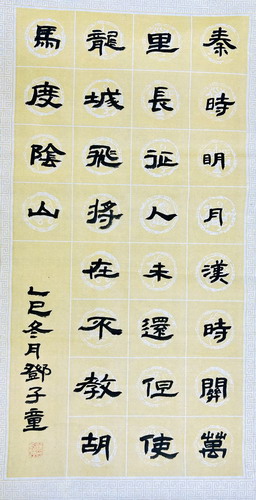 秦時明月漢時關萬
里長征人未還但使
龍城飛將在不教胡
馬度陰山
乙巳冬月鄧子童